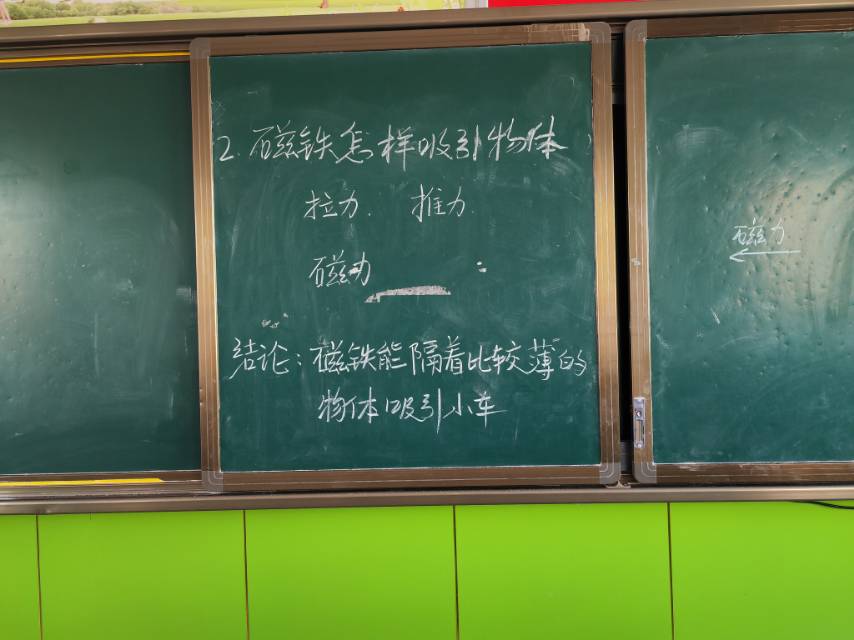 2. 磁铁怎样吸引物体
拉力. 推力.
磁力
结论:磁铁能隔着比较薄的
物体吸引小车
磁力